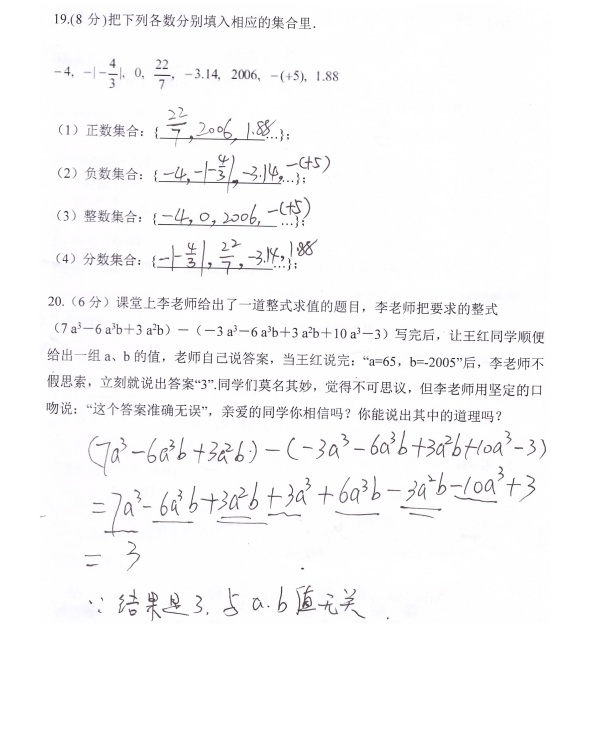 19.(8 分)把下列各数分别填入相应的集合里.
－4, －|－4/3|, 0, 22/7, －3.14, 2006, －(+5), 1.88
（1）正数集合：{ 22/7, 2006, 1.88 …}；
（2）负数集合：{ －4, －|－4/3|, －3.14, －(+5) …}；
（3）整数集合：{ －4, 0, 2006, －(+5) …}；
（4）分数集合：{ －|－4/3|, 22/7, －3.14, 1.88 …}；
20.（6 分）课堂上李老师给出了一道整式求值的题目，李老师把要求的整式
（7 a³－6 a³b＋3 a²b）－（－3 a³－6 a³b＋3 a²b＋10 a³－3）写完后，让王红同学顺便
给出一组 a、b 的值，老师自己说答案，当王红说完：“a=65，b=-2005”后，李老师不
假思索，立刻就说出答案“3”.同学们莫名其妙，觉得不可思议，但李老师用坚定的口
吻说：“这个答案准确无误”，亲爱的同学你相信吗？你能说出其中的道理吗？
(7a³－6a³b+3a²b)－(－3a³－6a³b+3a²b+10a³－3)
=7a³－6a³b+3a²b+3a³+6a³b－3a²b－10a³+3
= 3
∵结果是3. 与a.b值无关.